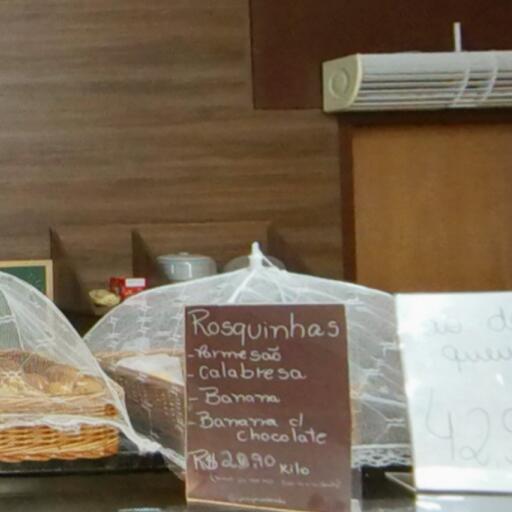 Rosquinhas
- Parmesão
- Calabresa
- Banana
- Banana c/
chocolate
R$ 28,90 Kilo
42,9